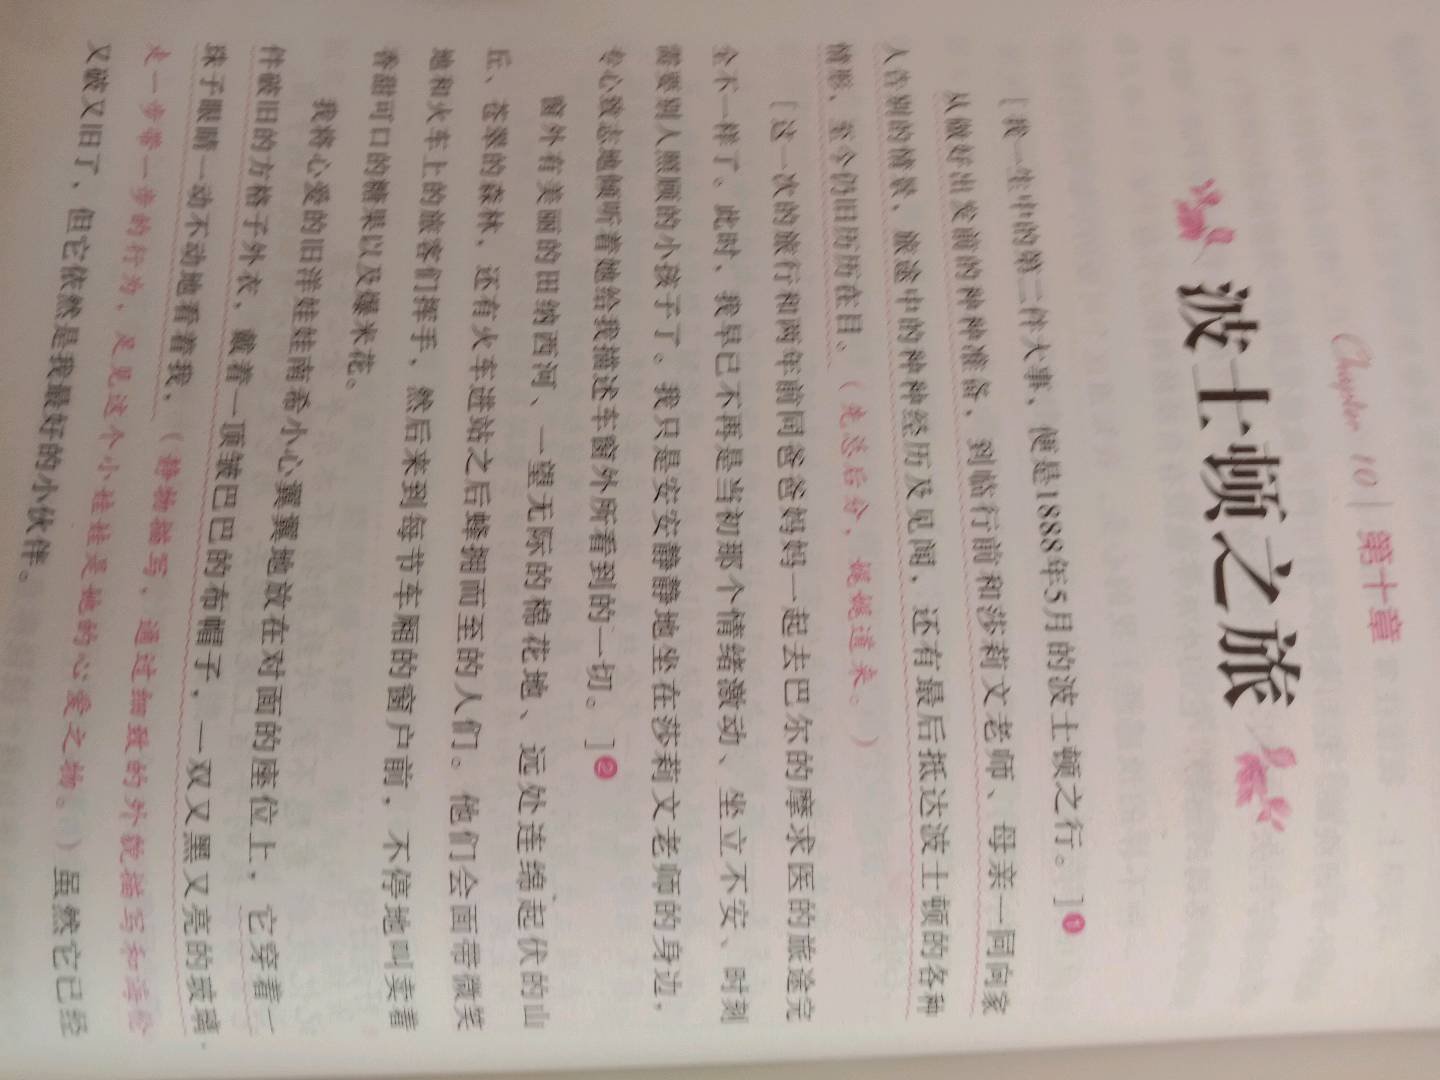 Chapter 10 | 第十章
波士顿之旅
［我一生中的第二件大事，便是1888年5月的波士顿之行。］❶
从做好出发前的种种准备，到临行前和莎莉文老师、母亲一同向家
人告别的情景，旅途中的种种经历及见闻，还有最后抵达波士顿的各种
情形，至今仍旧历历在目。（先总后分，娓娓道来。）
［这一次的旅行和两年前同爸爸妈妈一起去巴尔的摩求医的旅途完
全不一样了。此时，我早已不再是当初那个情绪激动、坐立不安、时刻
需要别人照顾的小孩子了。我只是安安静静地坐在莎莉文老师的身边，
专心致志地倾听着她给我描述车窗外所看到的一切。］❷
窗外有美丽的田纳西河、一望无际的棉花地、远处连绵起伏的山
丘、苍翠的森林，还有火车进站之后蜂拥而至的人们。他们会面带微笑
地和火车上的旅客们挥手，然后来到每节车厢的窗户前，不停地叫卖着
香甜可口的糖果以及爆米花。
我将心爱的旧洋娃娃南希小心翼翼地放在对面的座位上，它穿着一
件破旧的方格子外衣，戴着一顶皱巴巴的布帽子，一双又黑又亮的玻璃
珠子眼睛一动不动地看着我，（静物描写，通过细致的外貌描写和海伦
走一步带一步的行为，足见这个小娃娃是她的心爱之物。）虽然它已经
又破又旧了，但它依然是我最好的小伙伴。